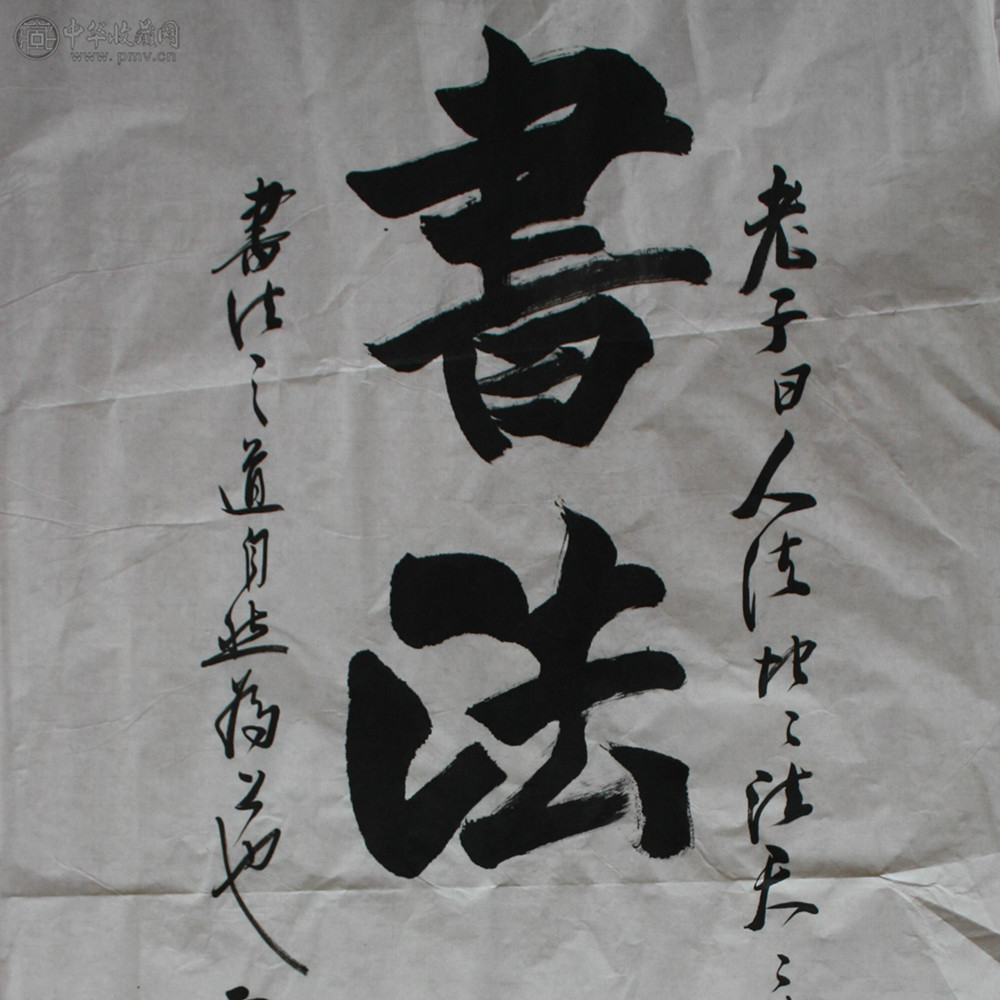 中华收藏网
www.pmv.cn
老子曰人法地〻法天〻
書法
書法之道自然為上也